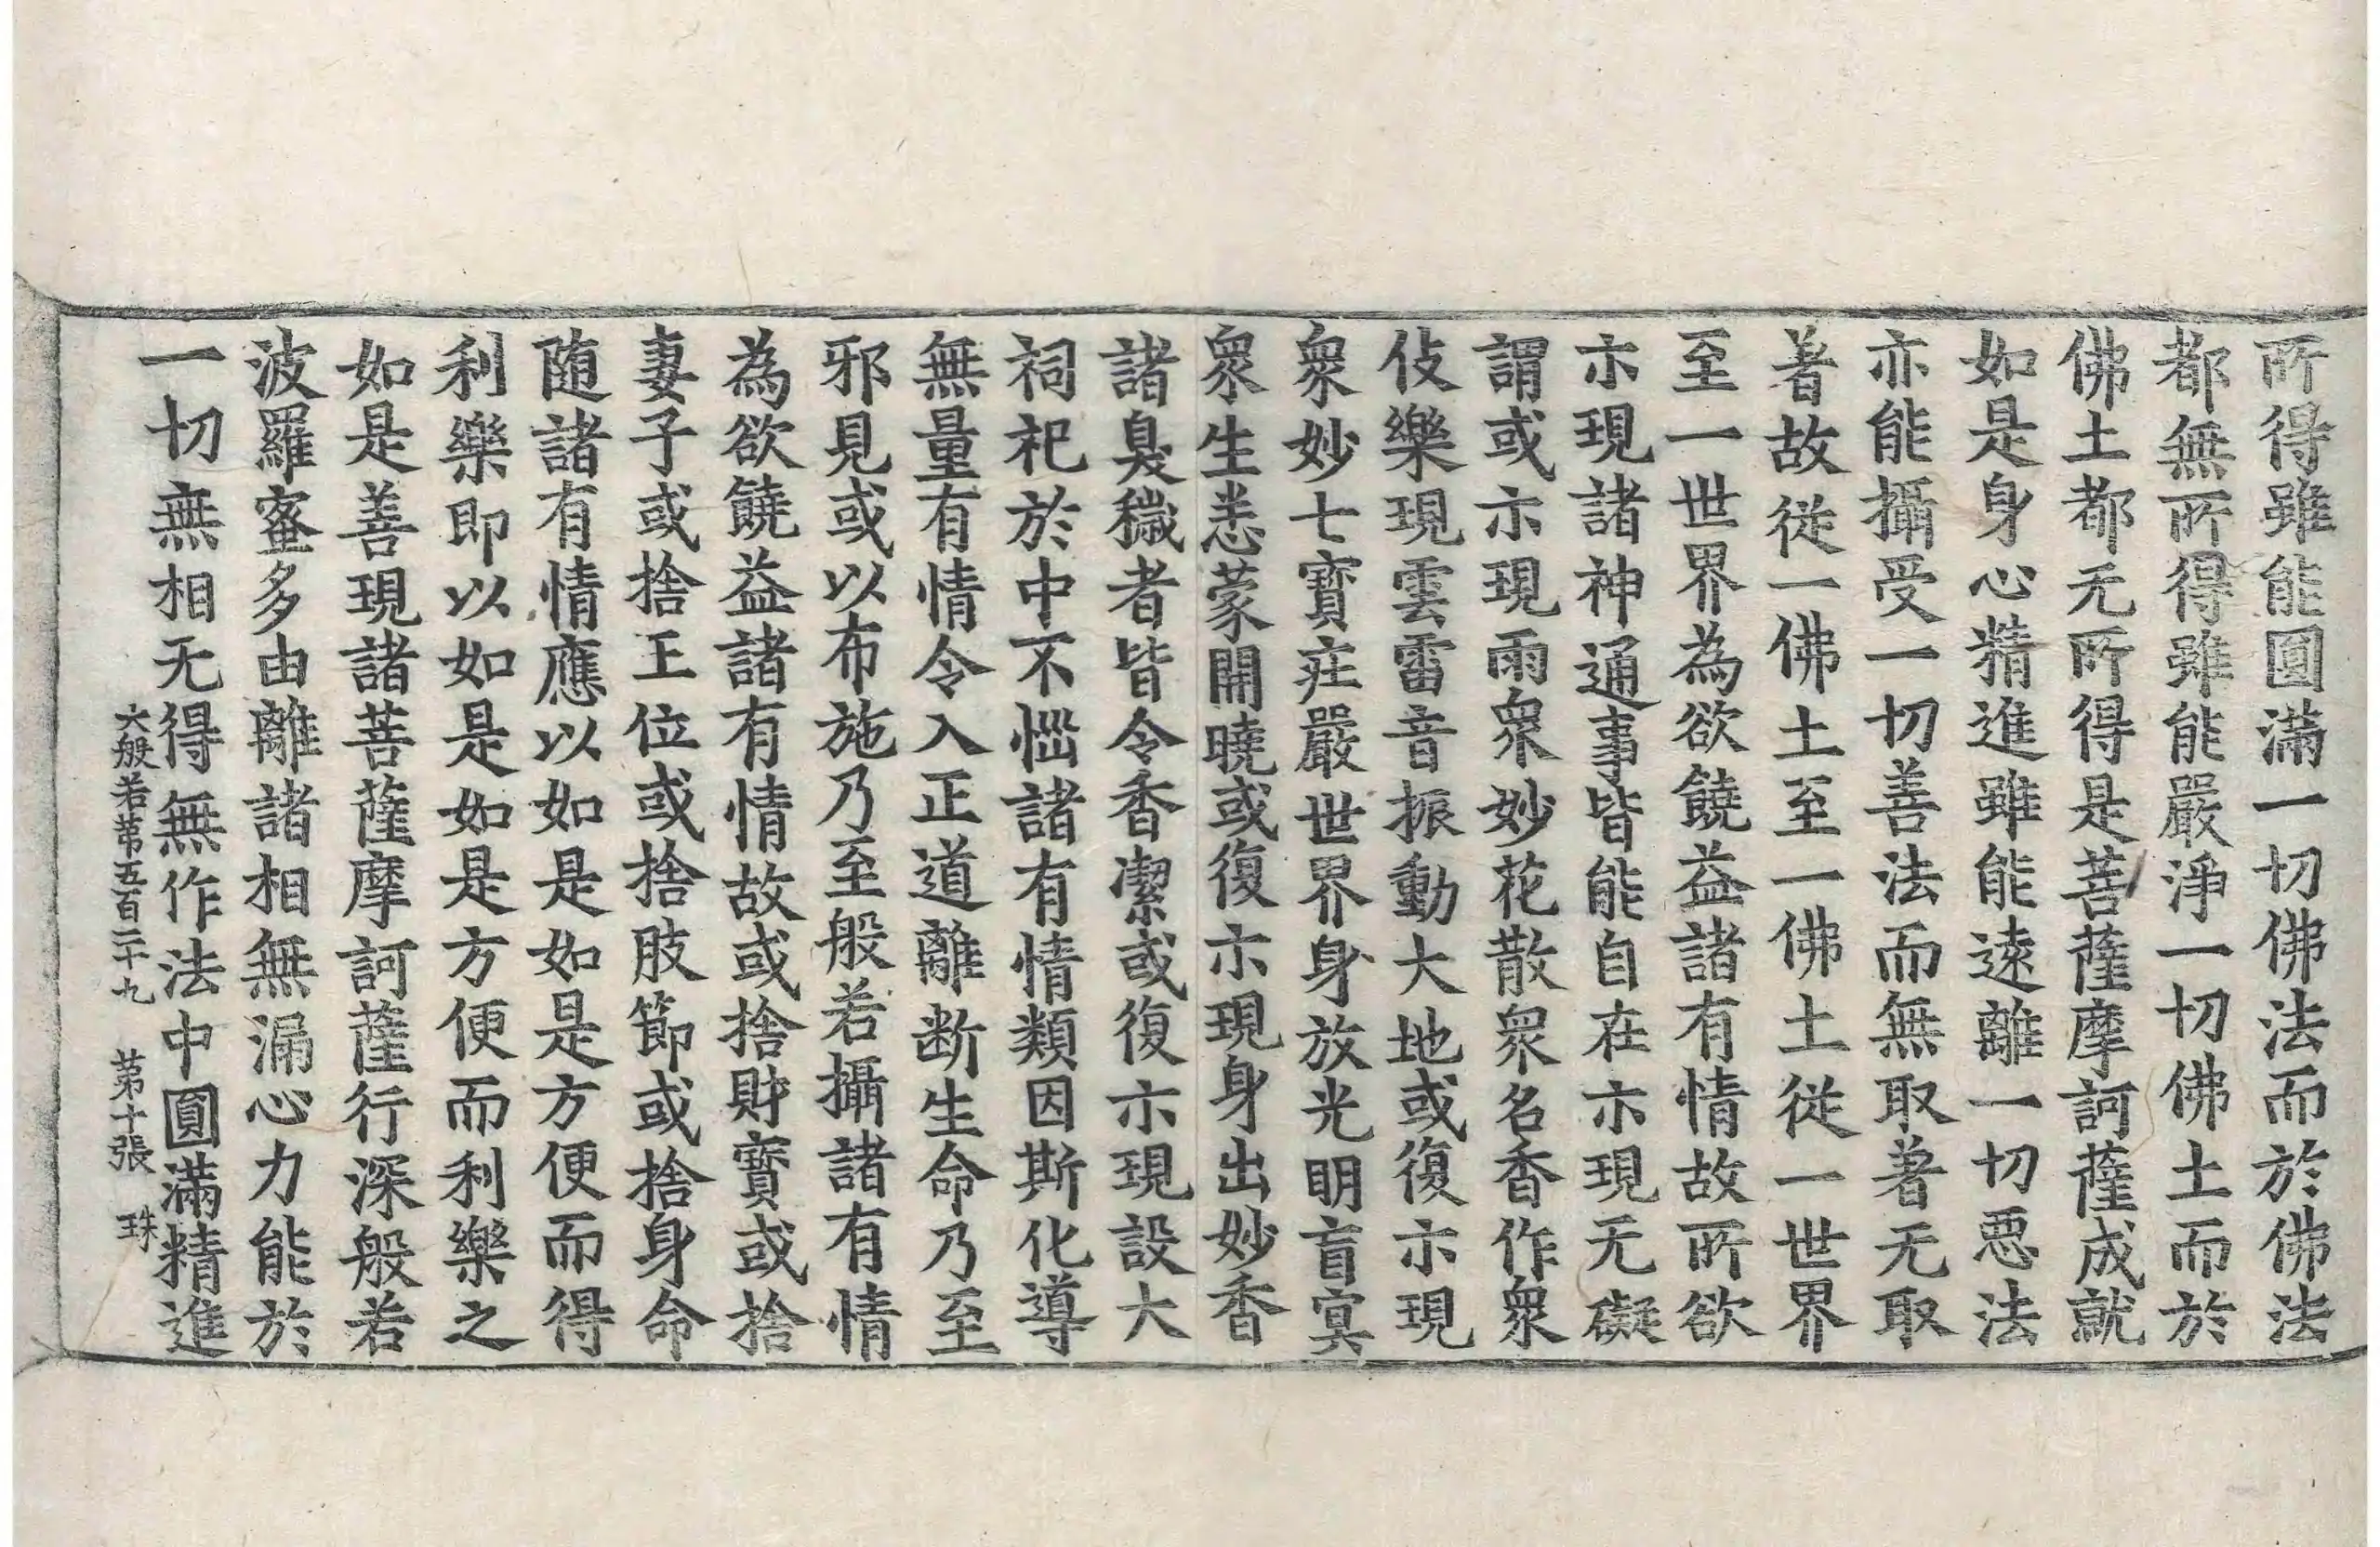 所得雖能圓滿一切佛法而於佛法
都無所得雖能嚴淨一切佛土而於
佛土都无所得是菩薩摩訶薩成就
如是身心精進雖能遠離一切惡法
亦能攝受一切善法而無取著无取
著故從一佛土至一佛土從一世界
至一世界為欲饒益諸有情故所欲
示現諸神通事皆能自在示現无礙
謂或示現雨衆妙花散衆名香作衆
伎樂現雲雷音振動大地或復示現
衆妙七寶莊嚴世界身放光明盲冥
衆生悉蒙開曉或復示現身出妙香
諸臭穢者皆令香潔或復示現設大
祠祀於中不惱諸有情類因斯化導
無量有情令入正道離断生命乃至
邪見或以布施乃至般若攝諸有情
為欲饒益諸有情故或捨財寶或捨
妻子或捨王位或捨肢節或捨身命
随諸有情應以如是如是方便而得
利樂即以如是如是方便而利樂之
如是善現諸菩薩摩訶薩行深般若
波羅蜜多由離諸相無漏心力能於
一切無相无得無作法中圓滿精進
大般若苐五百二十九　苐十張　珠